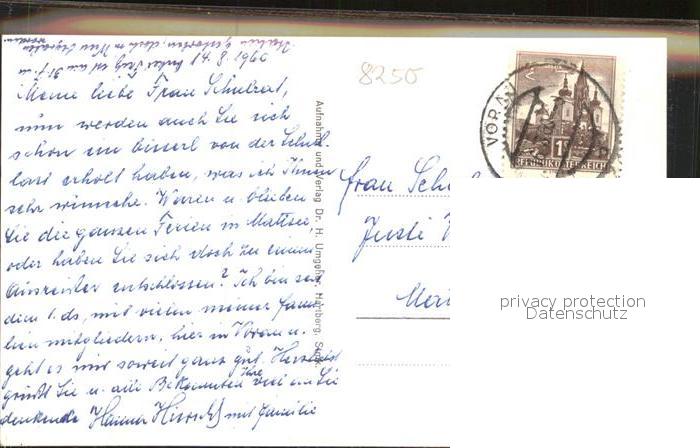 8250
Meine liebe Frau Schulrat,
nun werden auch Sie sich
schon ein bisserl von der Schul-
last erholt haben, was ich Ihnen
sehr wünsche. Waren u. blieben
Sie die ganzen Ferien in Mattsee,
oder haben Sie sich doch zu einem
Ausreißer entschlossen? Ich bin seit
dem 1. ds, mit vielen meiner Fami-
lienmitgliedern, hier in Vorau u.
geht es mir soweit ganz gut. Herzlichst
grüßt Sie u. alle Bekannten Ihre viel an Sie
denkende mit Familie
Aufnahme und Verlag Dr. H. Umgeher, Hartberg, Stmk.
VORA
1S
REPUBLIK ÖSTERREICH
Frau Sch
Justi
privacy protection
Datenschutz